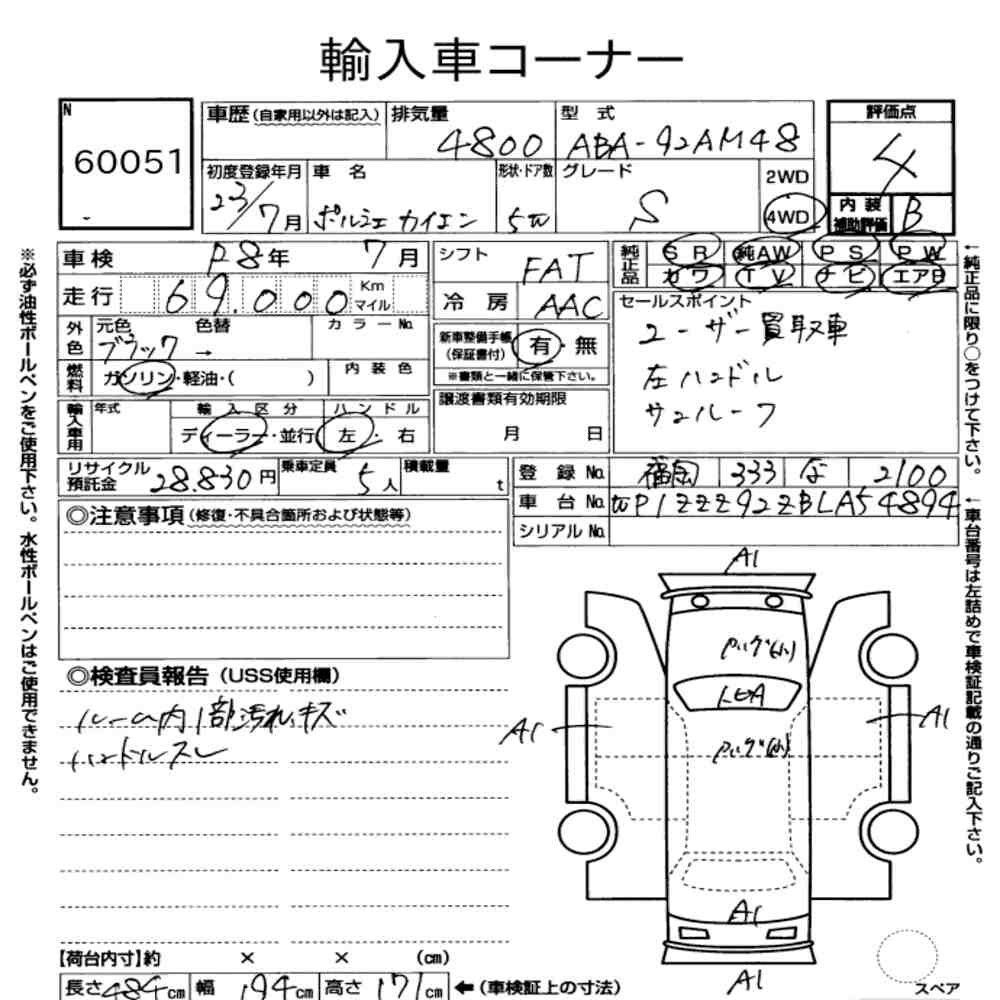 輸入車コーナー
N
60051
車歴 (自家用以外は記入) 排気量 4800 型式 ABA-92AM48
評価点 4
初度登録年月 23/7月 車名 ポルシェ カイエン 形状・ドア数 5W グレード S 2WD 4WD
内装補助評価 B
車検 R8年 7月 シフト FAT 純正品 SR 純AW PS PW
カワ TV ナビ エアB
走行 69,000 Km マイル 冷房 AAC
セールスポイント
ユーザー買取車
左ハンドル
サンルーフ
外色 元色 ブラック 色替 → カラーNo.
新車整備手帳 (保証書付) 有・無
※書類と一緒に保管下さい。
燃料 ガソリン・軽油・( ) 内装色
輸入車用 年式 輸入区分 ディーラー・並行 ハンドル 左・右
譲渡書類有効期限
月 日
リサイクル預託金 28.830円 乗車定員 5人 積載量 t
登録No. 福岡 333 な 2100
車台No. WP1ZZZ92ZBLA54894
シリアルNo.
◎注意事項 (修復・不具合箇所および状態等)
◎検査員報告 (USS使用欄)
ルーム内1部汚れキズ
ハンドルスレ
A1
A1
A1
A1
A1
【荷台内寸】約 × × (cm)
長さ484cm 幅194cm 高さ171cm ←(車検証上の寸法)
スペア
※必ず油性ボールペンをご使用下さい。水性ボールペンはご使用できません。
←純正品に限り○をつけて下さい。
←車台番号は左詰めで車検証記載の通りご記入下さい。